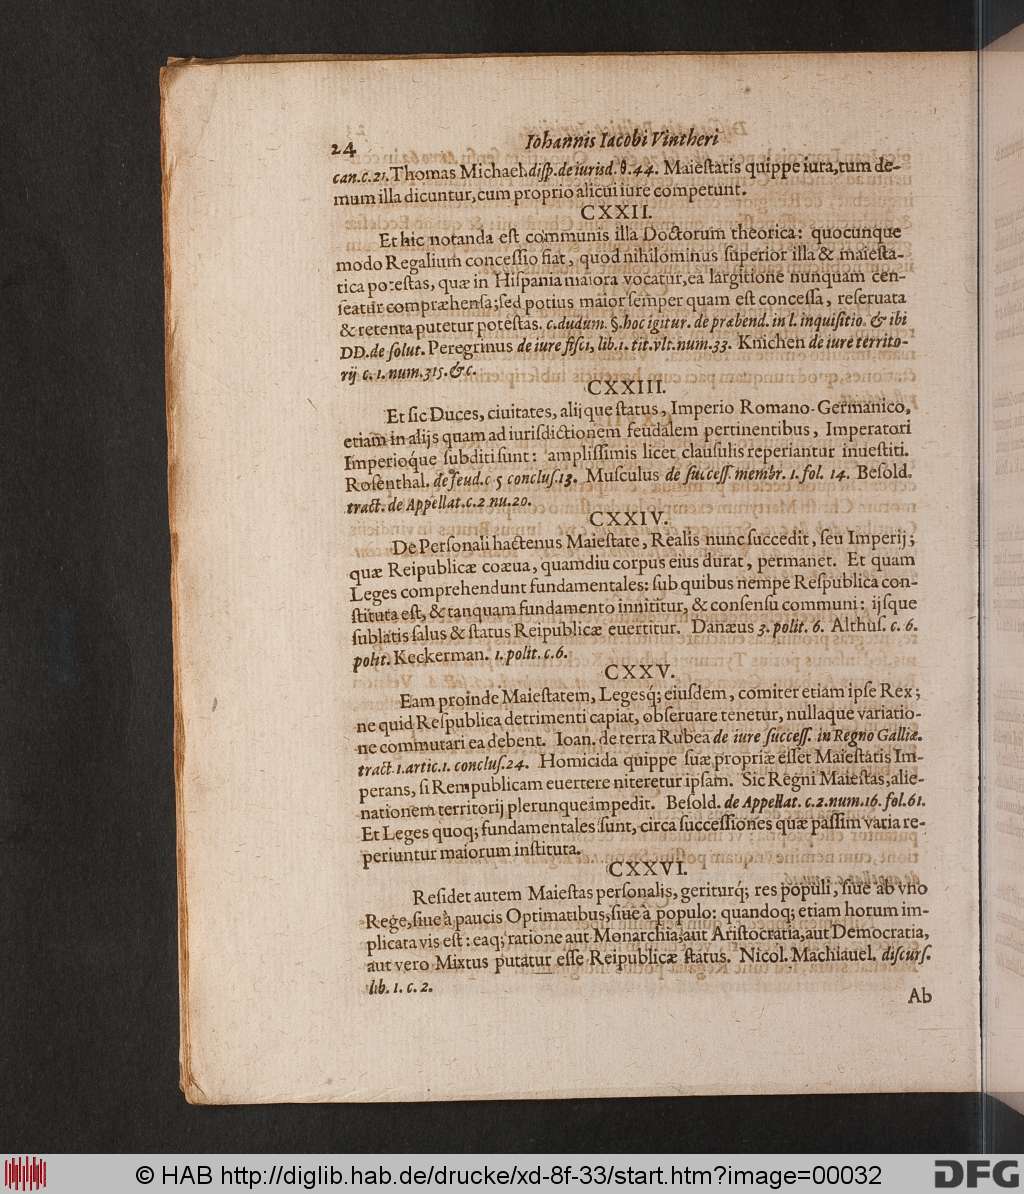 24 Iohannis Iacobi Vintheri
can.c.21. Thomas Michael. disp. de iurisd. θ.44. Maieſtatis quippe iura, tum de-
mum illa dicuntur, cum proprio alicui iure competunt.
CXXII.
Et hic notanda eſt communis illa Doctorum theorica: quocunque
modo Regalium conceſſio fiat, quod nihilominus ſuperior illa & maieſta-
tica poteſtas, quæ in Hiſpania maiora vocatur, ea largitione nunquam cen-
ſeatur compræhenſa; ſed potius maior ſemper quam eſt conceſſa, reſeruata
& retenta putetur poteſtas. c. dudum. §. hoc igitur. de præbend. in l. inquiſitio. & ibi
DD. de ſolut. Peregrinus de iure fiſci, lib. 1. tit. vlt. num. 33. Knichen de iure territo-
rij c. 1. num. 315. &c.
CXXIII.
Et ſic Duces, ciuitates, alijque ſtatus, Imperio Romano-Germanico,
etiam in alijs quam ad iurisdictionem feudalem pertinentibus, Imperatori
Imperioq́ue ſubditi ſunt: ampliſſimis licet clauſulis reperiantur inueſtiti.
Roſenthal. de feud. c 5 concluſ. 13. Muſculus de ſucceſſ. membr. 1. fol. 14. Beſold.
tract. de Appellat. c. 2 nu. 20.
CXXIV.
De Perſonali hactenus Maieſtate, Realis nunc ſuccedit, ſeu Imperij;
quæ Reipublicæ coæua, quamdiu corpus eius durat, permanet. Et quam
Leges comprehendunt fundamentales: ſub quibus nempe Reſpublica con-
ſtituta eſt, & tanquam fundamento innititur, & conſenſu communi: ijſque
ſublatis ſalus & ſtatus Reipublicæ euertitur. Danæus 3. polit. 6. Althuſ. c. 6.
polit. Keckerman. 1. polit. c. 6.
CXXV.
Eam proinde Maieſtatem, Legesq́; eiuſdem, comiter etiam ipſe Rex;
ne quid Reſpublica detrimenti capiat, obſeruare tenetur, nullaque variatio-
ne commutari ea debent. Ioan. de terra Rubea de iure ſucceſſ. in Regno Galliæ.
tract. 1. artic. 1. concluſ. 24. Homicida quippe ſuæ propriæ eſſet Maieſtatis Im-
perans, ſi Rempublicam euertere niteretur ipſam. Sic Regni Maieſtas, alie-
nationem territorij plerunque impedit. Beſold. de Appellat. c. 2. num. 16. fol. 61.
Et Leges quoq; fundamentales ſunt, circa ſucceſſiones quæ paſſim varia re-
periuntur maiorum inſtituta.
CXXVI.
Reſidet autem Maieſtas perſonalis, geriturq́; res populi, ſiue ab vno
Rege, ſiue à paucis Optimatibus, ſiue à populo: quandoq; etiam horum im-
plicata vis eſt: eaq; ratione aut Monarchia, aut Ariſtocratia, aut Democratia,
aut vero Mixtus putatur eſſe Reipublicæ ſtatus. Nicol. Machiauel. diſcurſ.
lib. 1. c. 2.
Ab
© HAB http://diglib.hab.de/drucke/xd-8f-33/start.htm?image=00032
DFG